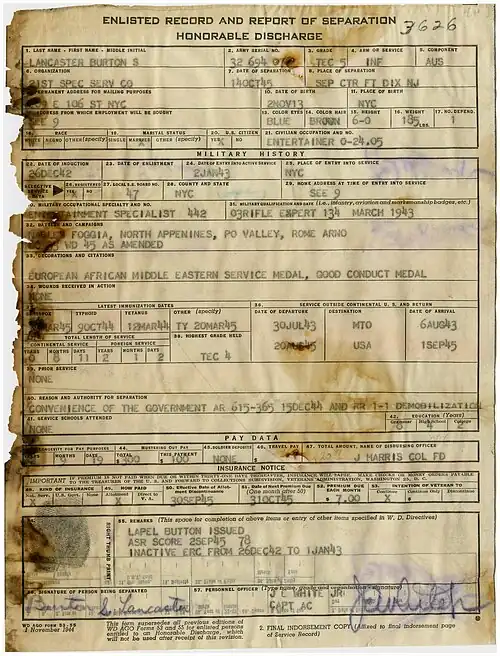 ENLISTED RECORD AND REPORT OF SEPARATION
HONORABLE DISCHARGE
3626
1. LAST NAME - FIRST NAME - MIDDLE INITIAL 2. ARMY SERIAL NO. 3. GRADE 4. ARM OR SERVICE 5. COMPONENT
LANCASTER BURTON S 32 694 TEC 5 INF AUS
6. ORGANIZATION 7. DATE OF SEPARATION 8. PLACE OF SEPARATION
21ST SPEC SERV CO 14OCT45 SEP CTR FT DIX NJ
PERMANENT ADDRESS FOR MAILING PURPOSES 10. DATE OF BIRTH 11. PLACE OF BIRTH
E 106 ST NYC 2NOV13 NYC
ADDRESS FROM WHICH EMPLOYMENT WILL BE SOUGHT 13. COLOR EYES 14. COLOR HAIR 15. HEIGHT 16. WEIGHT 17. NO. DEPEND.
BLUE BROWN 6-0 185 LBS. 1
RACE 19. MARITAL STATUS 20. U.S. CITIZEN 21. CIVILIAN OCCUPATION AND NO.
ENTERTAINER 0-24.05
MILITARY HISTORY
22. DATE OF INDUCTION 23. DATE OF ENLISTMENT 24. DATE OF ENTRY INTO ACTIVE SERVICE 25. PLACE OF ENTRY INTO SERVICE
26DEC42 2JAN43 NYC
SELECTIVE SERVICE DATA 26. REGISTERED 27. LOCAL S.S. BOARD NO. 28. COUNTY AND STATE 29. HOME ADDRESS AT TIME OF ENTRY INTO SERVICE
47 NYC SEE 9
30. MILITARY OCCUPATIONAL SPECIALTY AND NO. 31. MILITARY QUALIFICATION AND DATE (i.e., infantry, aviation and marksmanship badges, etc.)
ENTERTAINMENT SPECIALIST 442 03RIFLE EXPERT 134 MARCH 1943
32. BATTLES AND CAMPAIGNS
FOGGIA, NORTH APPENINES, PO VALLEY, ROME ARNO
WD 45 AS AMENDED
33. DECORATIONS AND CITATIONS
EUROPEAN AFRICAN MIDDLE EASTERN SERVICE MEDAL, GOOD CONDUCT MEDAL
34. WOUNDS RECEIVED IN ACTION
NONE
LATEST IMMUNIZATION DATES 36. SERVICE OUTSIDE CONTINENTAL U.S. AND RETURN
SMALLPOX TYPHOID TETANUS OTHER (specify) DATE OF DEPARTURE DESTINATION DATE OF ARRIVAL
MAR45 9OCT44 12MAR44 TY 20MAR45 30JUL43 MTO 6AUG43
TOTAL LENGTH OF SERVICE 38. HIGHEST GRADE HELD 20AUG45 USA 1SEP45
CONTINENTAL SERVICE FOREIGN SERVICE
YEARS MONTHS DAYS YEARS MONTHS DAYS
0 8 11 2 1 2 TEC 4
39. PRIOR SERVICE
NONE
40. REASON AND AUTHORITY FOR SEPARATION
CONVENIENCE OF THE GOVERNMENT AR 615-365 15DEC44 AND RR 1-1 DEMOBILIZATION
41. SERVICE SCHOOLS ATTENDED 42. EDUCATION (Years)
NONE
PAY DATA
LONGEVITY FOR PAY PURPOSES 44. MUSTERING OUT PAY 45. SOLDIER DEPOSITS 46. TRAVEL PAY 47. TOTAL AMOUNT, NAME OF DISBURSING OFFICER
9 19 NONE J HARRIS COL FD
INSURANCE NOTICE
IMPORTANT IF PREMIUM IS NOT PAID WHEN DUE OR WITHIN THIRTY-ONE DAYS THEREAFTER, INSURANCE WILL LAPSE. MAKE CHECKS OR MONEY ORDERS PAYABLE TO THE TREASURER OF THE U.S. AND FORWARD TO COLLECTIONS SUBDIVISION, VETERANS ADMINISTRATION, WASHINGTON 25, D.C.
KIND OF INSURANCE HOW PAID 50. Effective Date of Allotment Discontinuance 51. Date of Next Premium Due (One month after 50) 52. PREMIUM DUE EACH MONTH 53. INTENTION OF VETERAN TO
X X 30SEP45 31OCT45 $ 7.00 X
RIGHT THUMB PRINT
55. REMARKS (This space for completion of above items or entry of other items specified in W. D. Directives)
LAPEL BUTTON ISSUED
ASR SCORE 2SEP45 78
INACTIVE ERC FROM 26DEC42 TO 1JAN43
SIGNATURE OF PERSON BEING SEPARATED 57. PERSONNEL OFFICER (Type name, grade and organization - signature)
Burton S. Lancaster J E WHITE JR
CAPT AC
WD AGO FORM 53-55
1 November 1944
This form supersedes all previous editions of WD AGO Forms 53 and 55 for enlisted persons entitled to an Honorable Discharge, which will not be used after receipt of this revision.
2. FINAL INDORSEMENT COPY (Affixed to final indorsement page of Service Record)